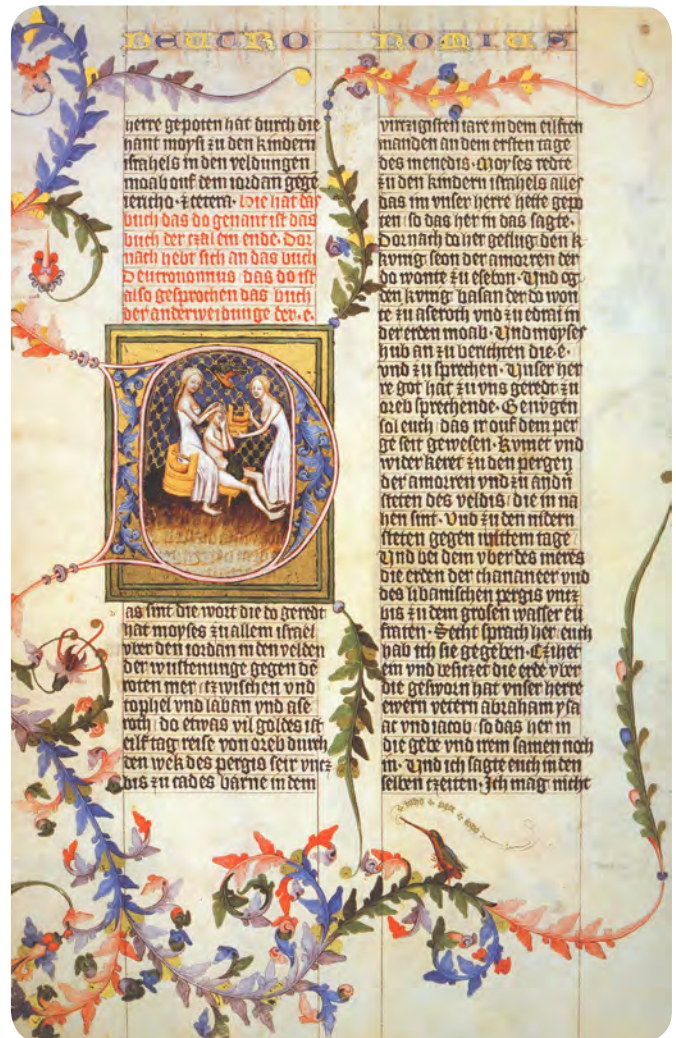 DEUTRO NOMIUS
herre gepoten hat durch die
hant moysi zu den kindern
israhels in den veldungen
moab ouf dem iordan gege
iericho · et cetera · Hie hat das
buch das do genant ist das
buch der czal ein ende · Dor
nach hebt sich an das buch
Deutronomius das do ist
also gesprochen das buch
der anderweidunge der · e ·
D
as sint die wort die do geredt
hat moyses zu allem israel
vber den iordan in den velden
der wustenunge gegen dē
roten mer / czwischen vnd
tophel vnd laban vnd ase
roth / do etwas vil goldes ist
eilf tag reise von oreb durch
den wek des pergis seir vncz
bis zu cades barne in dem
virczigisten iare in dem eilften
manden an dem ersten tage
des menedis · Moyses redte
zu den kindern israhels alles
das im vnser herre hette gepo
ten / so das her in das sagte ·
Dornach do her geslug den k
kvnig seon der amorren der
do wonte zu esebon · Vnd og
den kvnig basan der do won
te zu aseroth vnd zu edrai in
der erden moab · Vnd moyses
hub an zu berichten die · e ·
vnd zu sprechen · Vnser her
re got hat zu vns geredt zu
oreb sprechende · Genvgen
sol euch / das ir ouf dem per
ge seit gewesen · kvmet vnd
wider keret zu den pergen
der amorren vnd zu andn̄
steten des veldis / die in na
hen sint · Vnd zu den nidern
steten gegen mittem tage
Vnd bei dem vber des meres
die erden der chananeer vnd
des libanischen pergis vntz
bis zu dem grosen wasser eu
fraten · Secht sprach her euch
hab ich sie gegeben · Czihet
ein vnd besitzet die erde vber
die gesworn hat vnser herre
ewern vetern abraham ysa
ac vnd iacob / so das her in
die gebe vnd irem samen noch
in · Vnd ich sagte euch in den
selben czeiten · Ich mag nicht